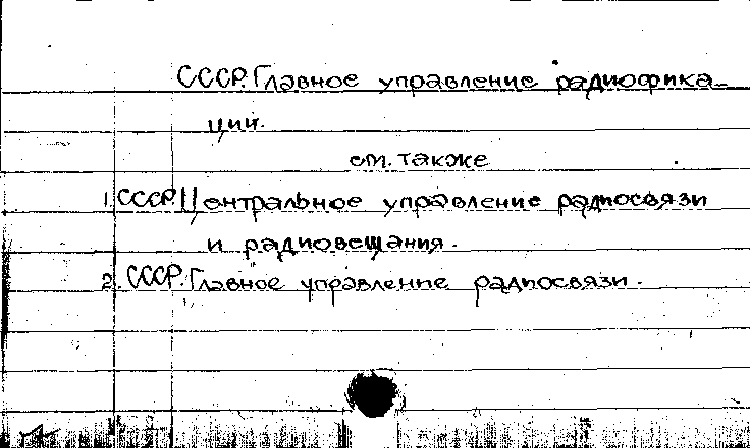 СССР. Главное управление радиофика-
ции.
см. также
1. СССР. Центральное управление радиосвязи
и радиовещания.
2. СССР. Главное управление радиосвязи.